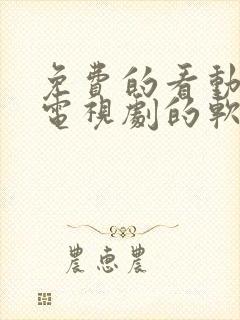 免費的看動
電視劇的軟
農惠農